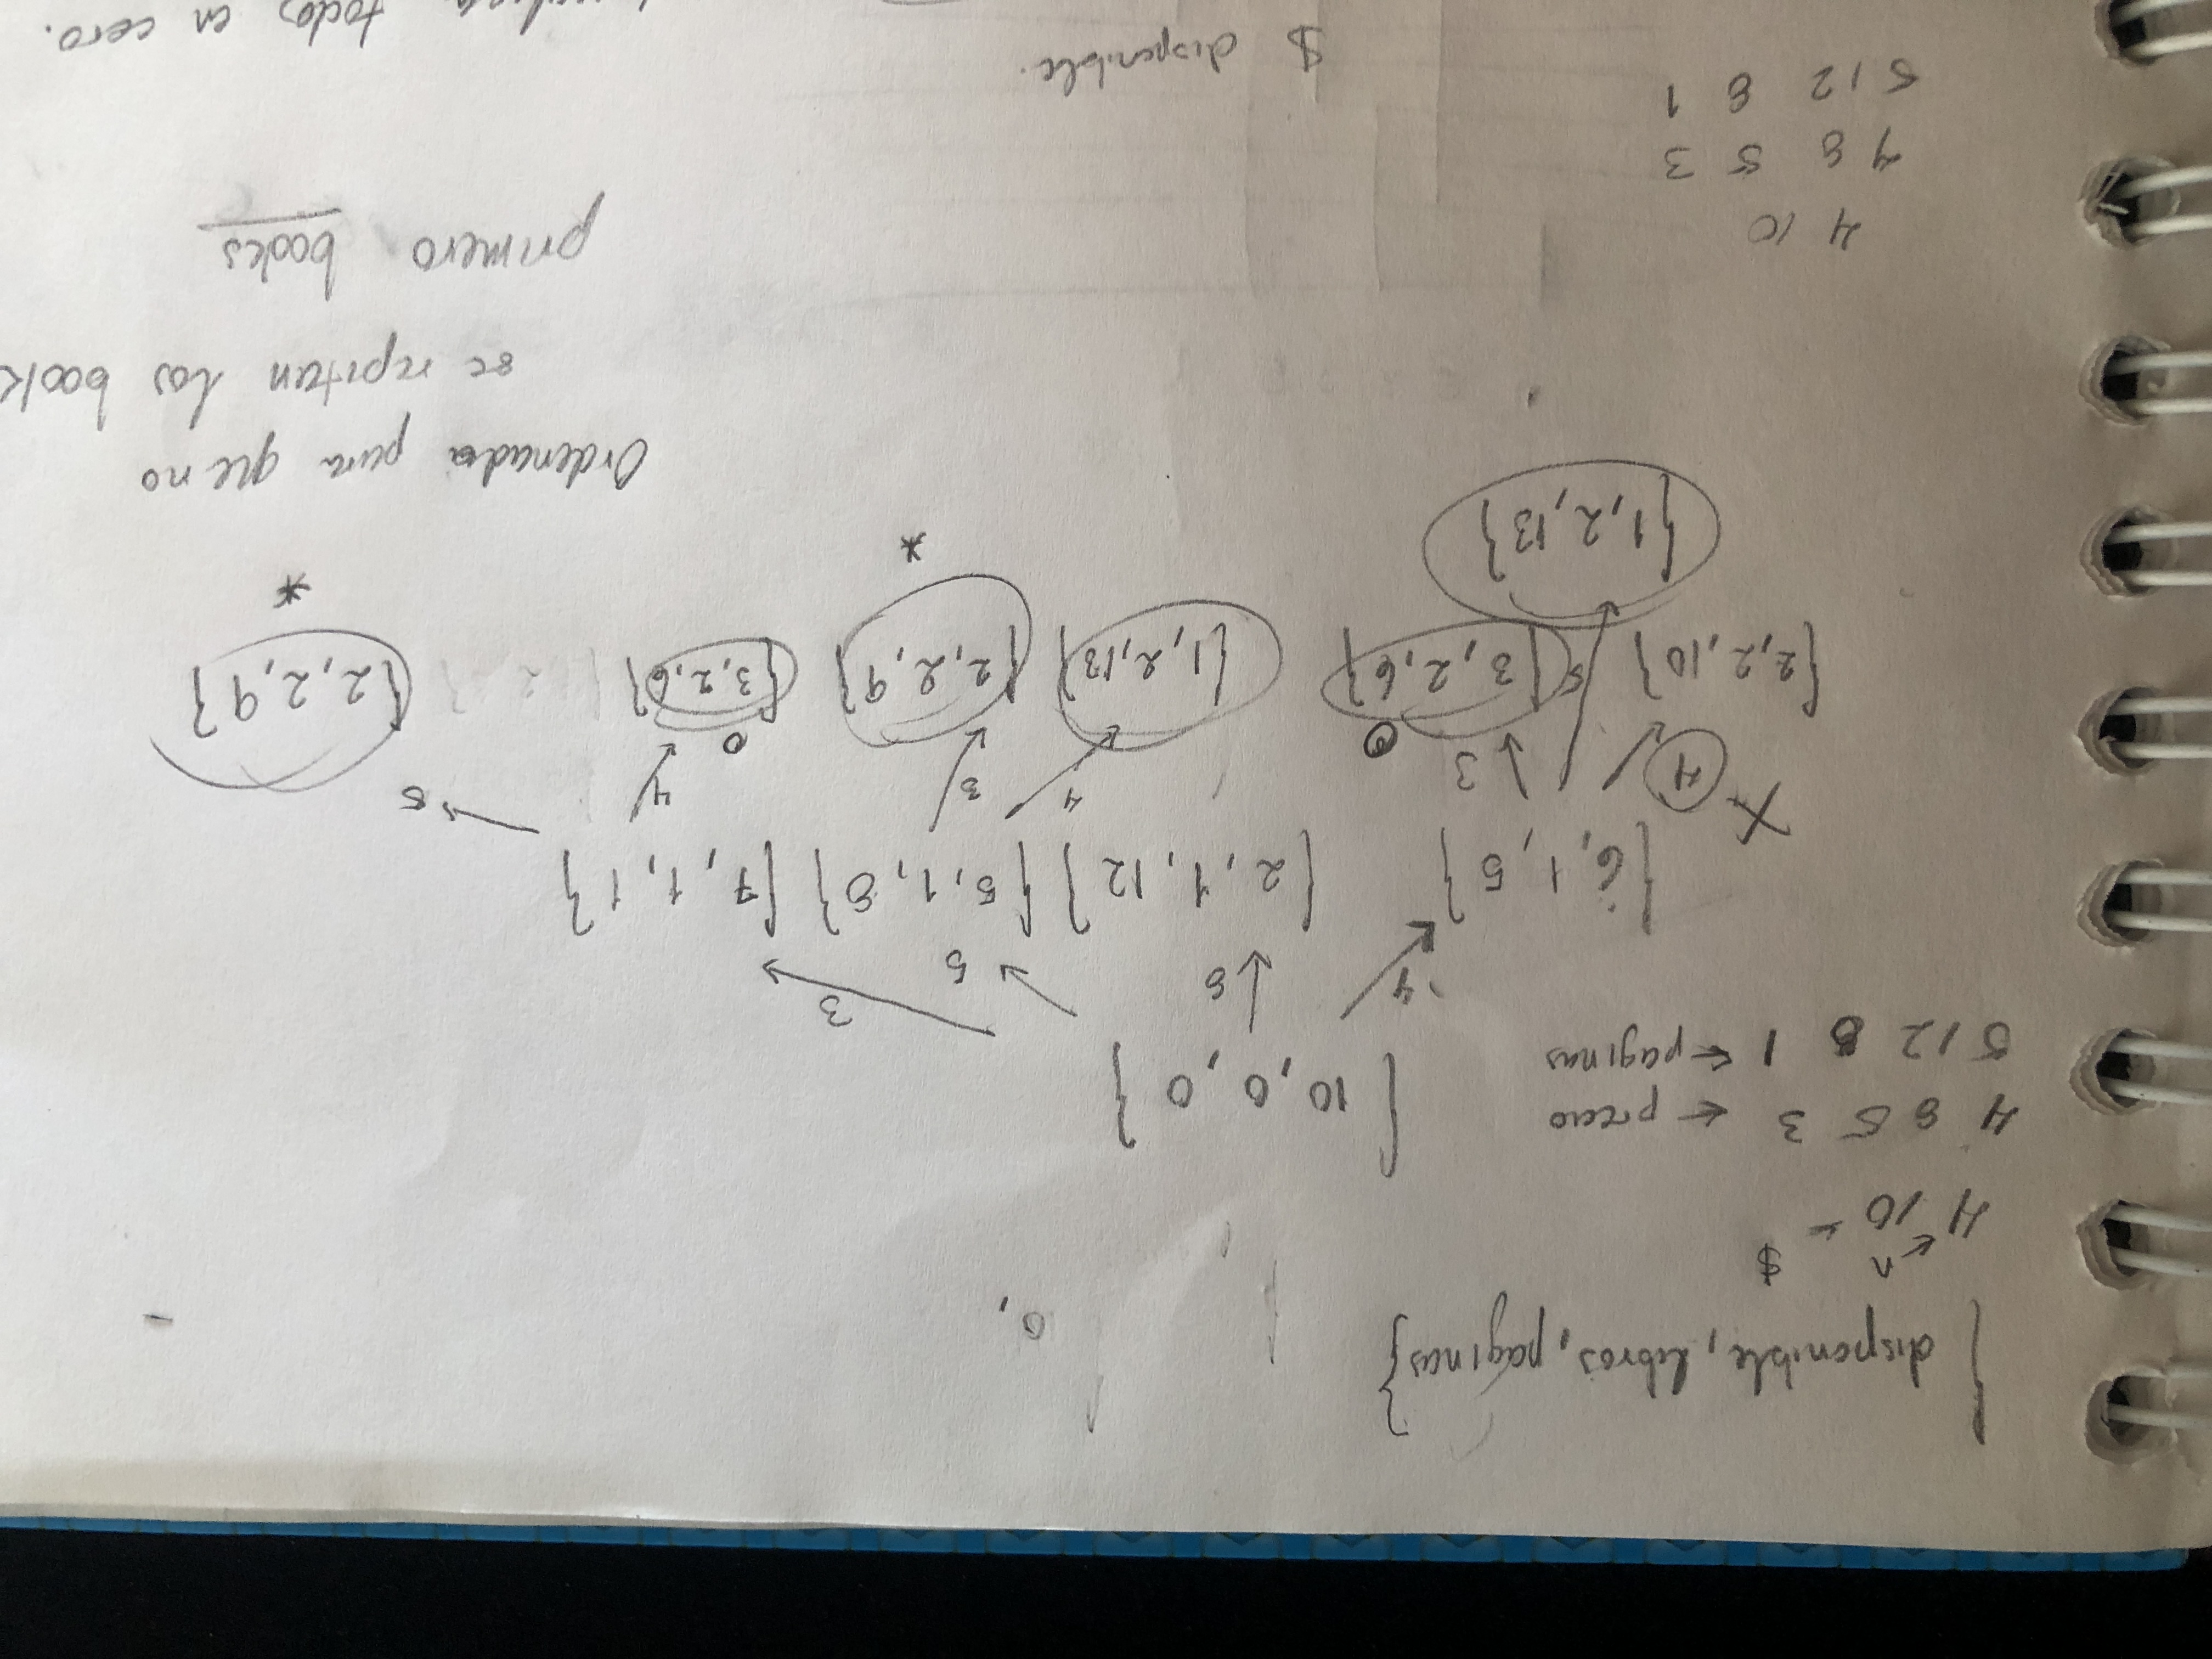 { disponible, libros, páginas}
0,
4 ←n 10 ← $
4 8 5 3 ← precio
5 12 8 1 ← paginas
{ 10, 0, 0 }
4 8 5 3
{6, 1, 5} {2, 1, 12} {5, 1, 8} {7, 1, 1}
X 4 3 4 3 4 5
0 0
{2,2,10} 5 {3, 2, 6} {1, 2, 13} {2, 2, 9} {3, 2, 6} {2, 2, 9}
* *
{1, 2, 13}
Ordenada para que no
se repitan los book
primero books
4 10
4 8 5 3
5 12 8 1
$ disponible.
todos en cero.